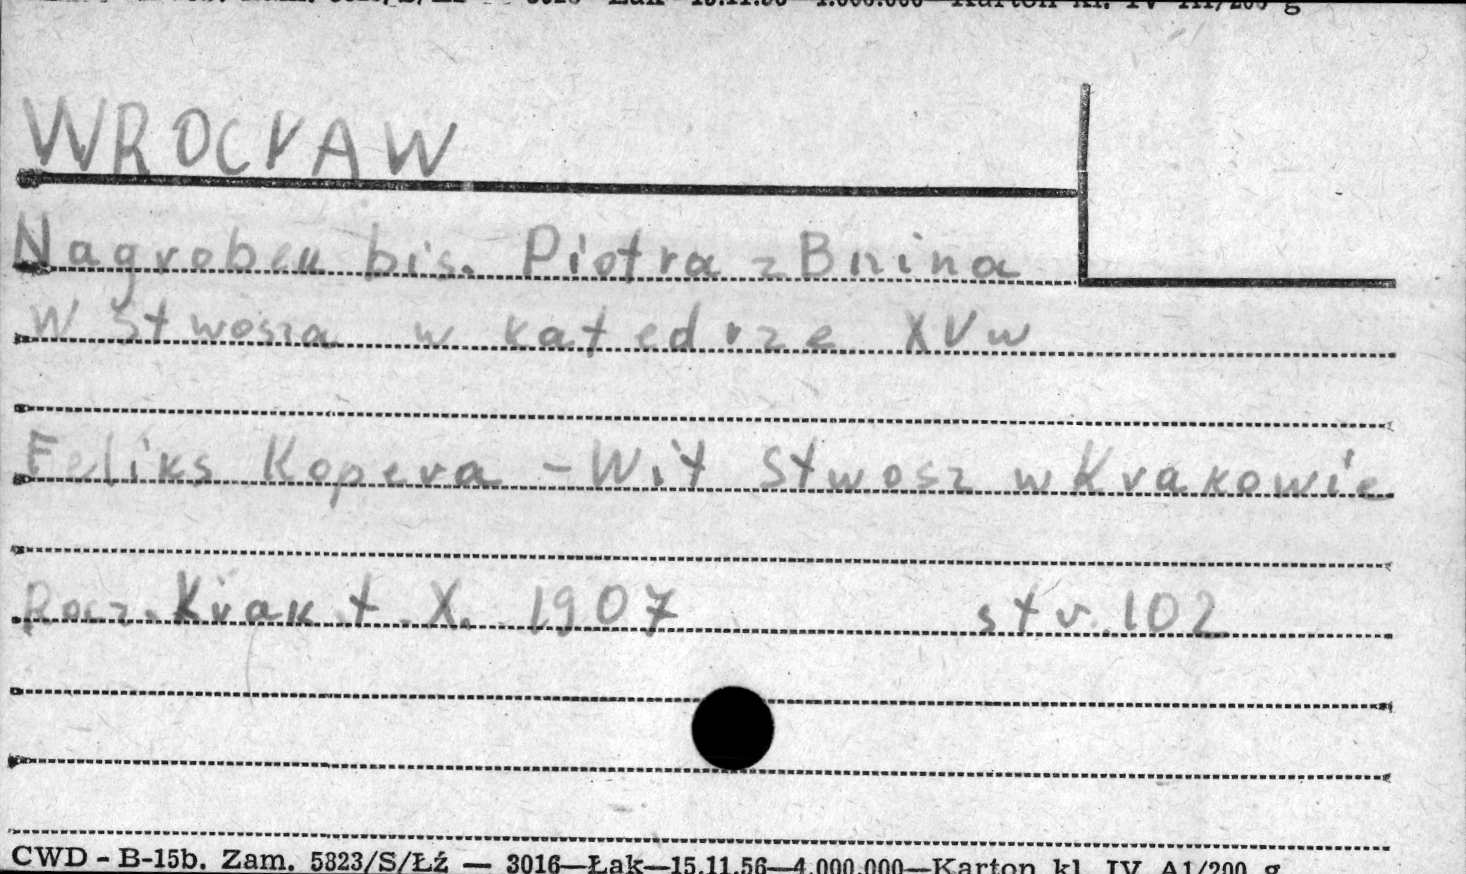 WROCŁAW
Nagrobek bis. Piotra z Bnina
W Stwosza w katedrze XV w
Feliks Kopera - Wit Stwosz w Krakowie
Rocz. Krak t. X. 1907 str. 102
CWD - B-15b. Zam. 5823/S/Łź — 3016—Łąk—15.11.56—4.000.000—Karton kl. IV A1/200 g